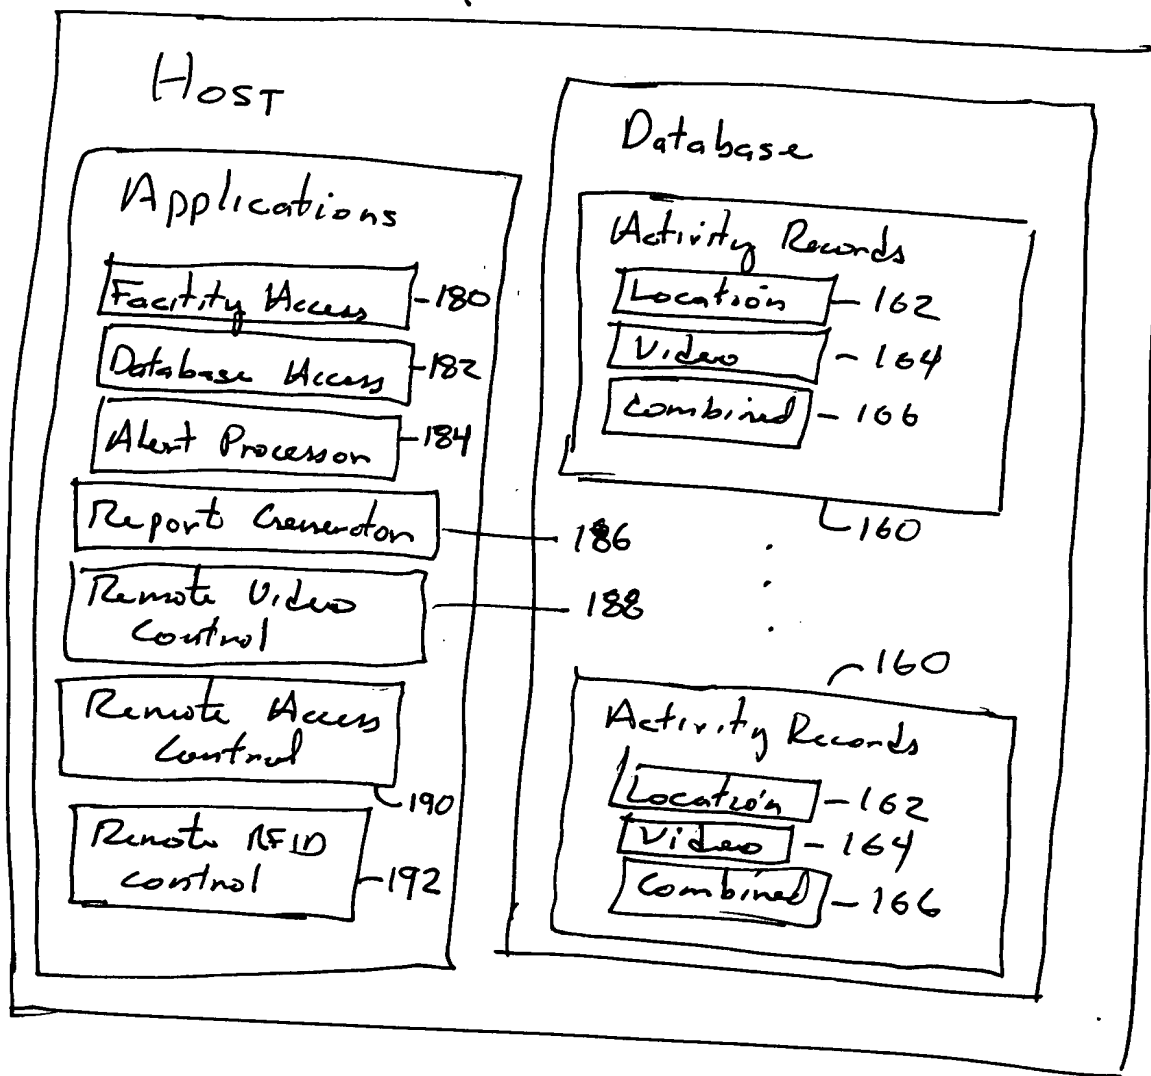 Host
Applications
Facitity Access -180
Database Access -182
Alert Processor -184
Report Generator 186
Remote Video
Control 188
Remote Access
Control
190
Remote RFID
control -192
Database
Activity Records
Location - 162
Video - 164
Combined - 166
160
160
Activity Records
Location - 162
Video - 164
Combined - 166